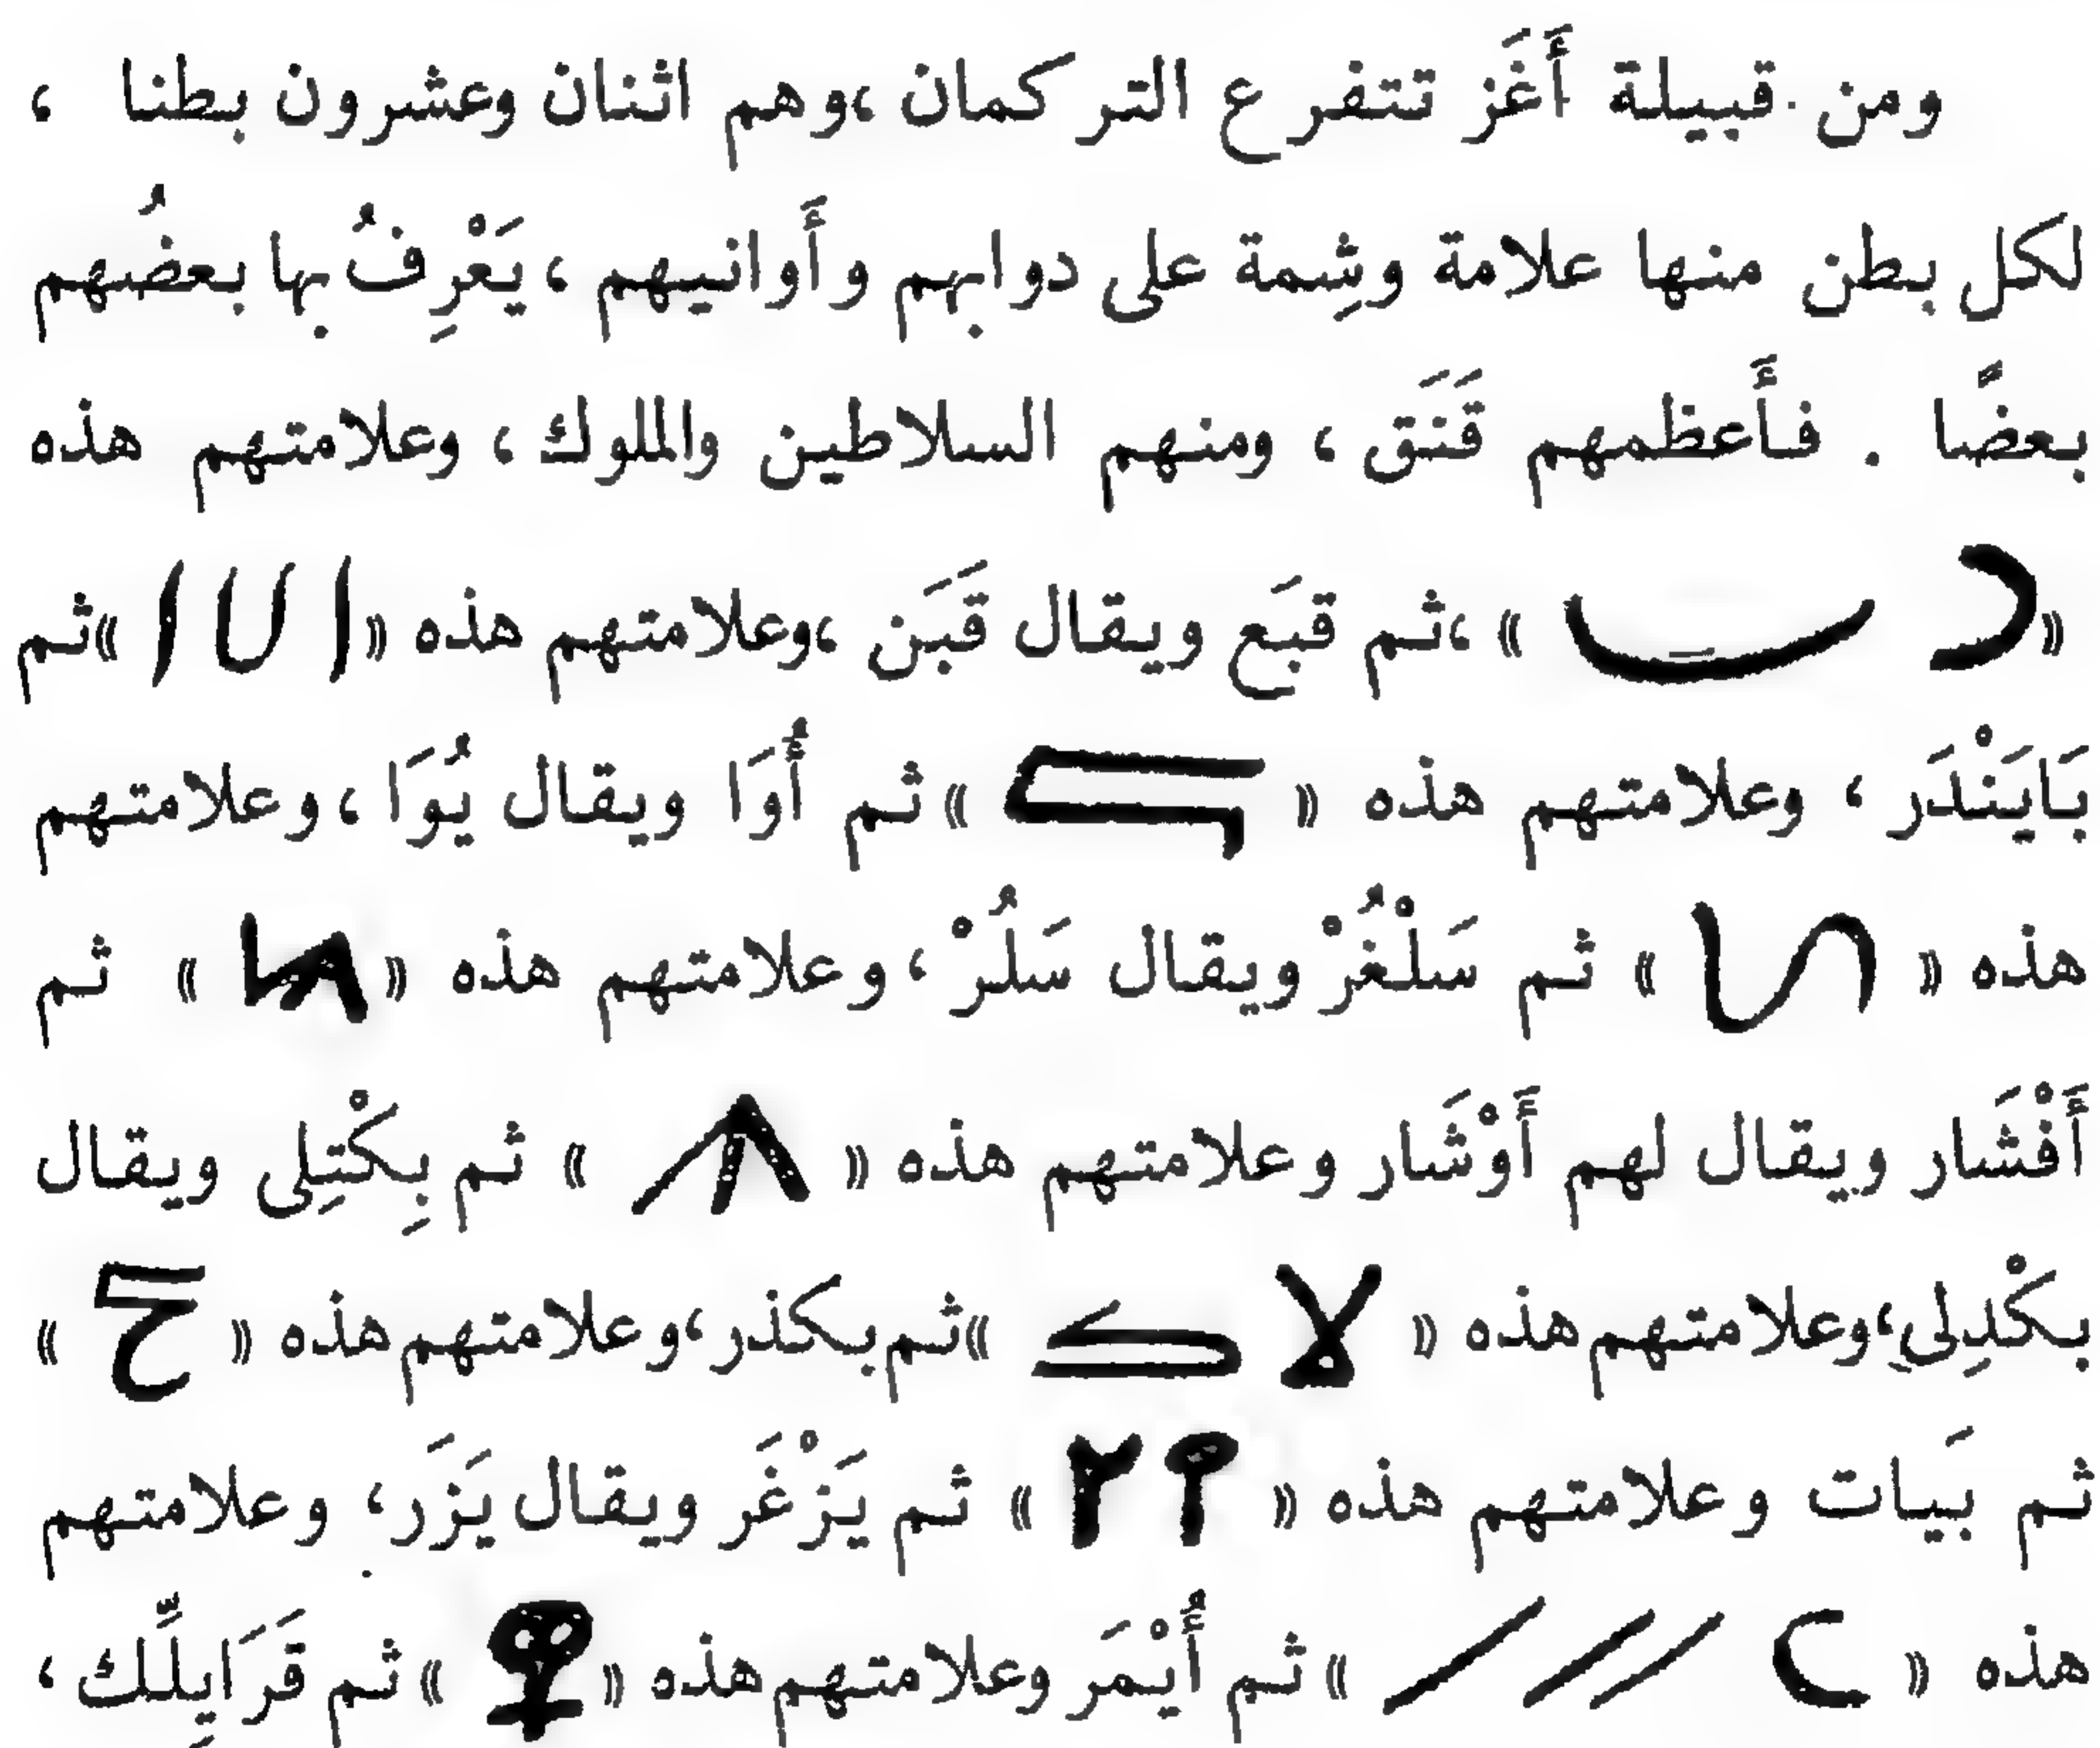 ومن قبيلة أَغَز تتفرع التركمان ، وهم اثنان وعشرون بطنا ،
لكل بطن منها علامة وشِمة على دوابهم وأَوانيهم ، يَعْرِفُ بها بعضُهم
بعضًا . فأَعظمهم قَنَق ، ومنهم السلاطين والملوك ، وعلامتهم هذه
« » ، ثم قبَع ويقال قَبَن ، وعلامتهم هذه « » ثم
بَايَنْدَر ، وعلامتهم هذه « » ثم أُوَا ويقال يُوَا ، وعلامتهم
هذه « » ثم سَلْغُرْ ويقال سَلُرْ ، وعلامتهم هذه « » ثم
أَفْشَار ويقال لهم أَوْشَار وعلامتهم هذه « » ثم بِكْتِلى ويقال
بكْدِلى ، وعلامتهم هذه « » ثم بكذر ، وعلامتهم هذه « »
ثم بَيات وعلامتهم هذه « » ثم يَزْغَر ويقال يَزَر ، وعلامتهم
هذه « » ثم أُيْمَر وعلامتهم هذه « » ثم قَرَايِلُّك ،